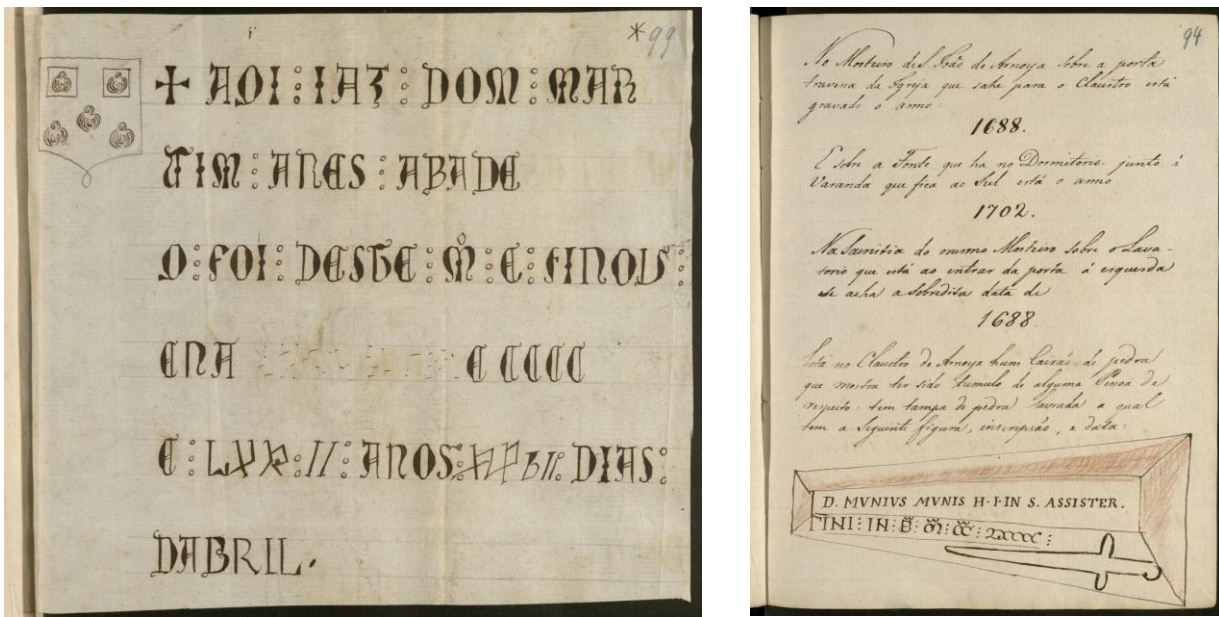 *99
✠ AQI : IAZ : DOM : MAR
TIM : ANES : ABADE
Q : FOI : DESTE : M° : E : FINOU :
ENA E CCCC
E : LXX : II : ANOS : DIAS :
DABRIL.
94
No Mosteiro de S. João de Arnoya sobre a porta
travessa da Igreja que sahe para o Claustro está
gravado o anno
1688.
E sobre a Fonte que ha no Dormitorio junto á
Varanda que fica ao Sul está o anno
1702.
Na Sacristia do mesmo Mosteiro sobre o Lava-
torio que está ao entrar da porta á esquerda
se acha a sobredita data de
1688.
Está no Claustro de Arnoya hum Caixão de pedra
que mostra ter sido tumulo de alguma Pessoa de
respeito. tem tampa de pedra lavrada a qual
tem a seguinte figura, inscripsão, e data:
D. MVNIVS MVNIS H·I·IN S. ASSISTER.
INI : IN : E :